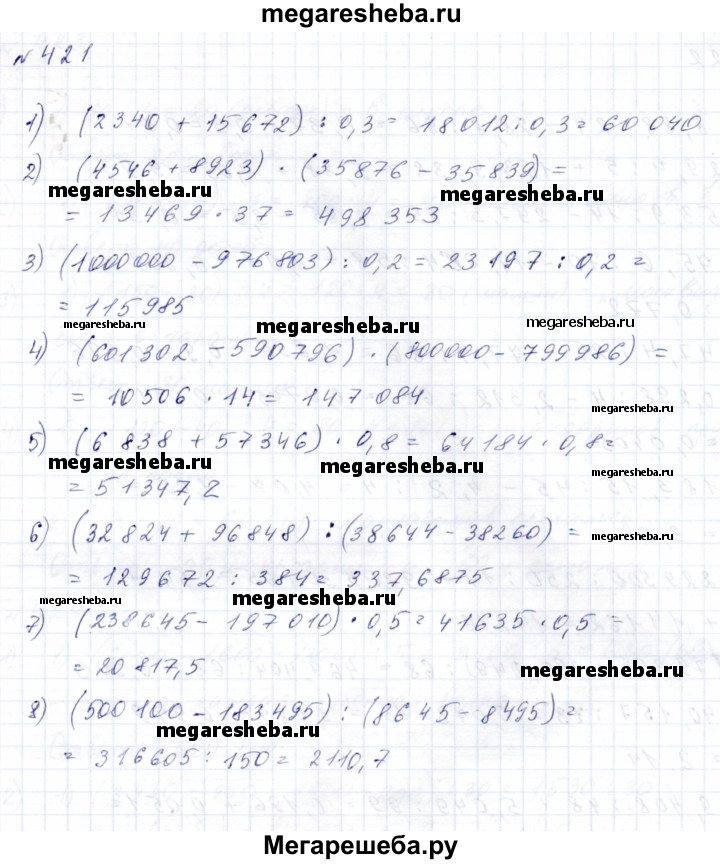 megaresheba.ru
№ 421
1) (2340 + 15672) : 0,3 = 18012 : 0,3 = 60 040
2) (4546 + 8923) · (35876 - 35839) =
megaresheba.ru megaresheba.ru
= 13469 · 37 = 498 353
3) (1000000 - 976803) : 0,2 = 23197 : 0,2 =
= 115985
megaresheba.ru megaresheba.ru megaresheba.ru
4) (601302 - 590796) · (800000 - 799986) =
= 10506 · 14 = 147 084
megaresheba.ru
5) (6 838 + 57346) · 0,8 = 64184 · 0,8 =
megaresheba.ru megaresheba.ru megaresheba.ru
= 51347,2
6) (32824 + 96848) : (38644 - 38260) =
megaresheba.ru
= 129672 : 384 = 337,6875
megaresheba.ru megaresheba.ru
7) (238645 - 197010) · 0,5 = 41635 · 0,5 =
= 20817,5
megaresheba.ru
8) (500100 - 183495) : (8645 - 8495) =
megaresheba.ru
= 316605 : 150 = 2110,7
Мегарешеба.ру